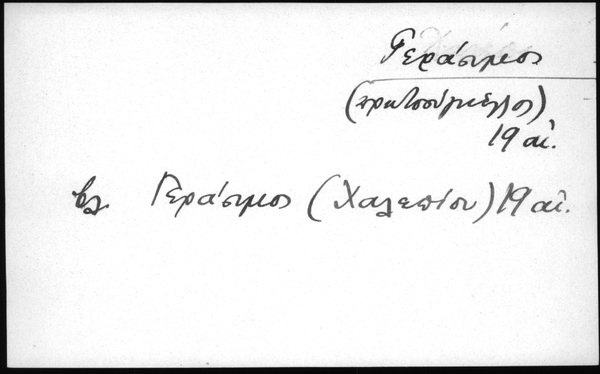 Γεράσιμος
(πρωτοσύγκελλος)
19 αἰ.
βλ. Γεράσιμος (Χαλεπίου) 19 αἰ.